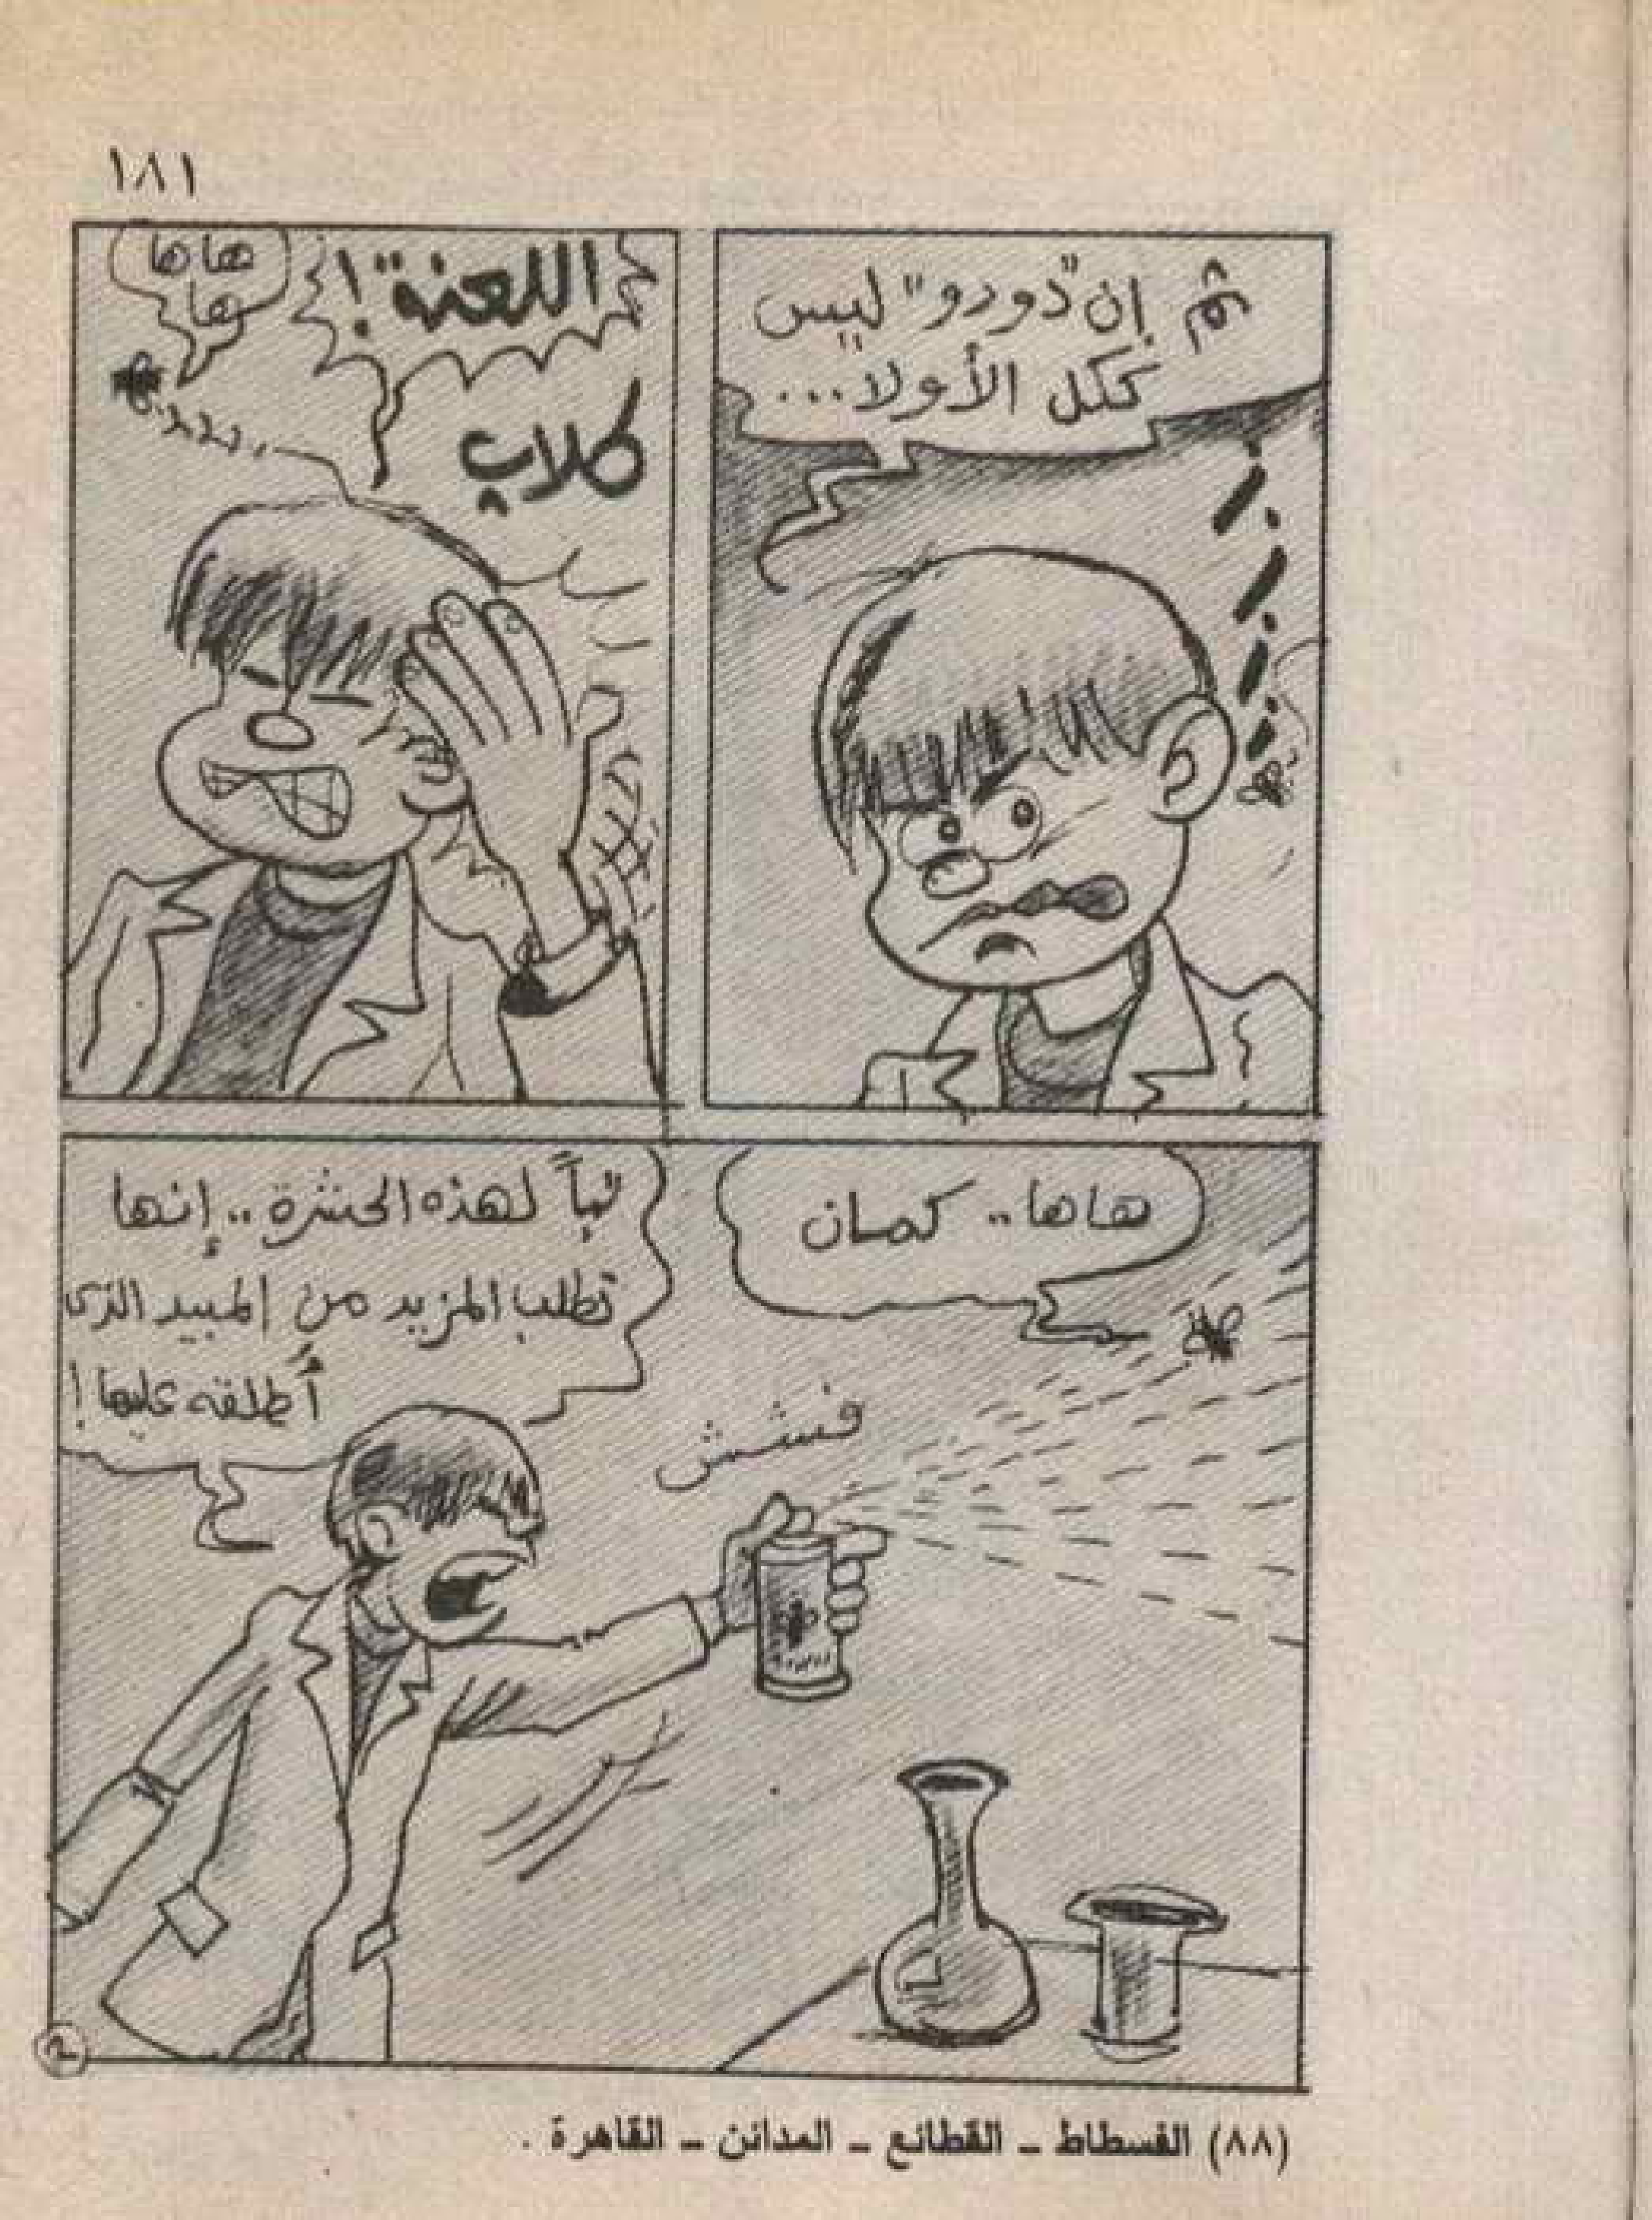 ١٨١
ثم إن "دودو" ليس
ككل الأولا...
ز
ز
ز
ز
اللعنة!
كلاب
هاها
ها
هاها.. كمان
تباً لهذه الحشرة.. إنها
تطلب المزيد من المبيد الذى
أطلقه عليها!
فششش
2
(٨٨) الفسطاط – القطائع – المدائن – القاهرة .